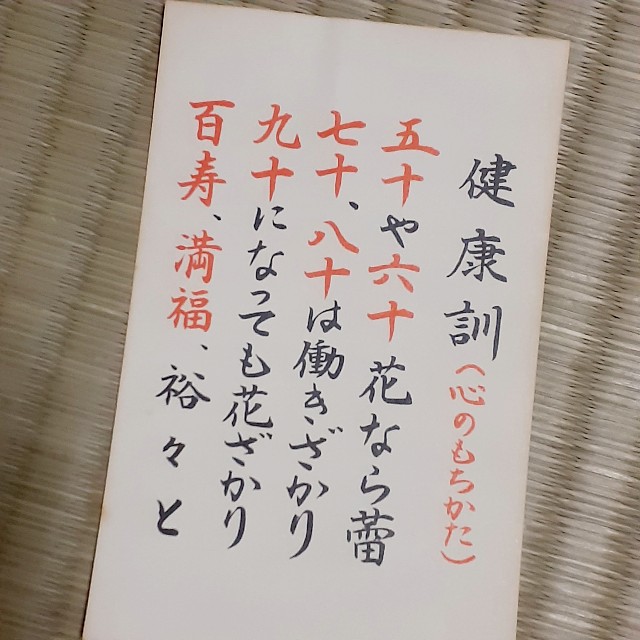 健康訓（心のもちかた）
五十や六十花なら蕾
七十、八十は働きざかり
九十になっても花ざかり
百寿、満福、裕々と